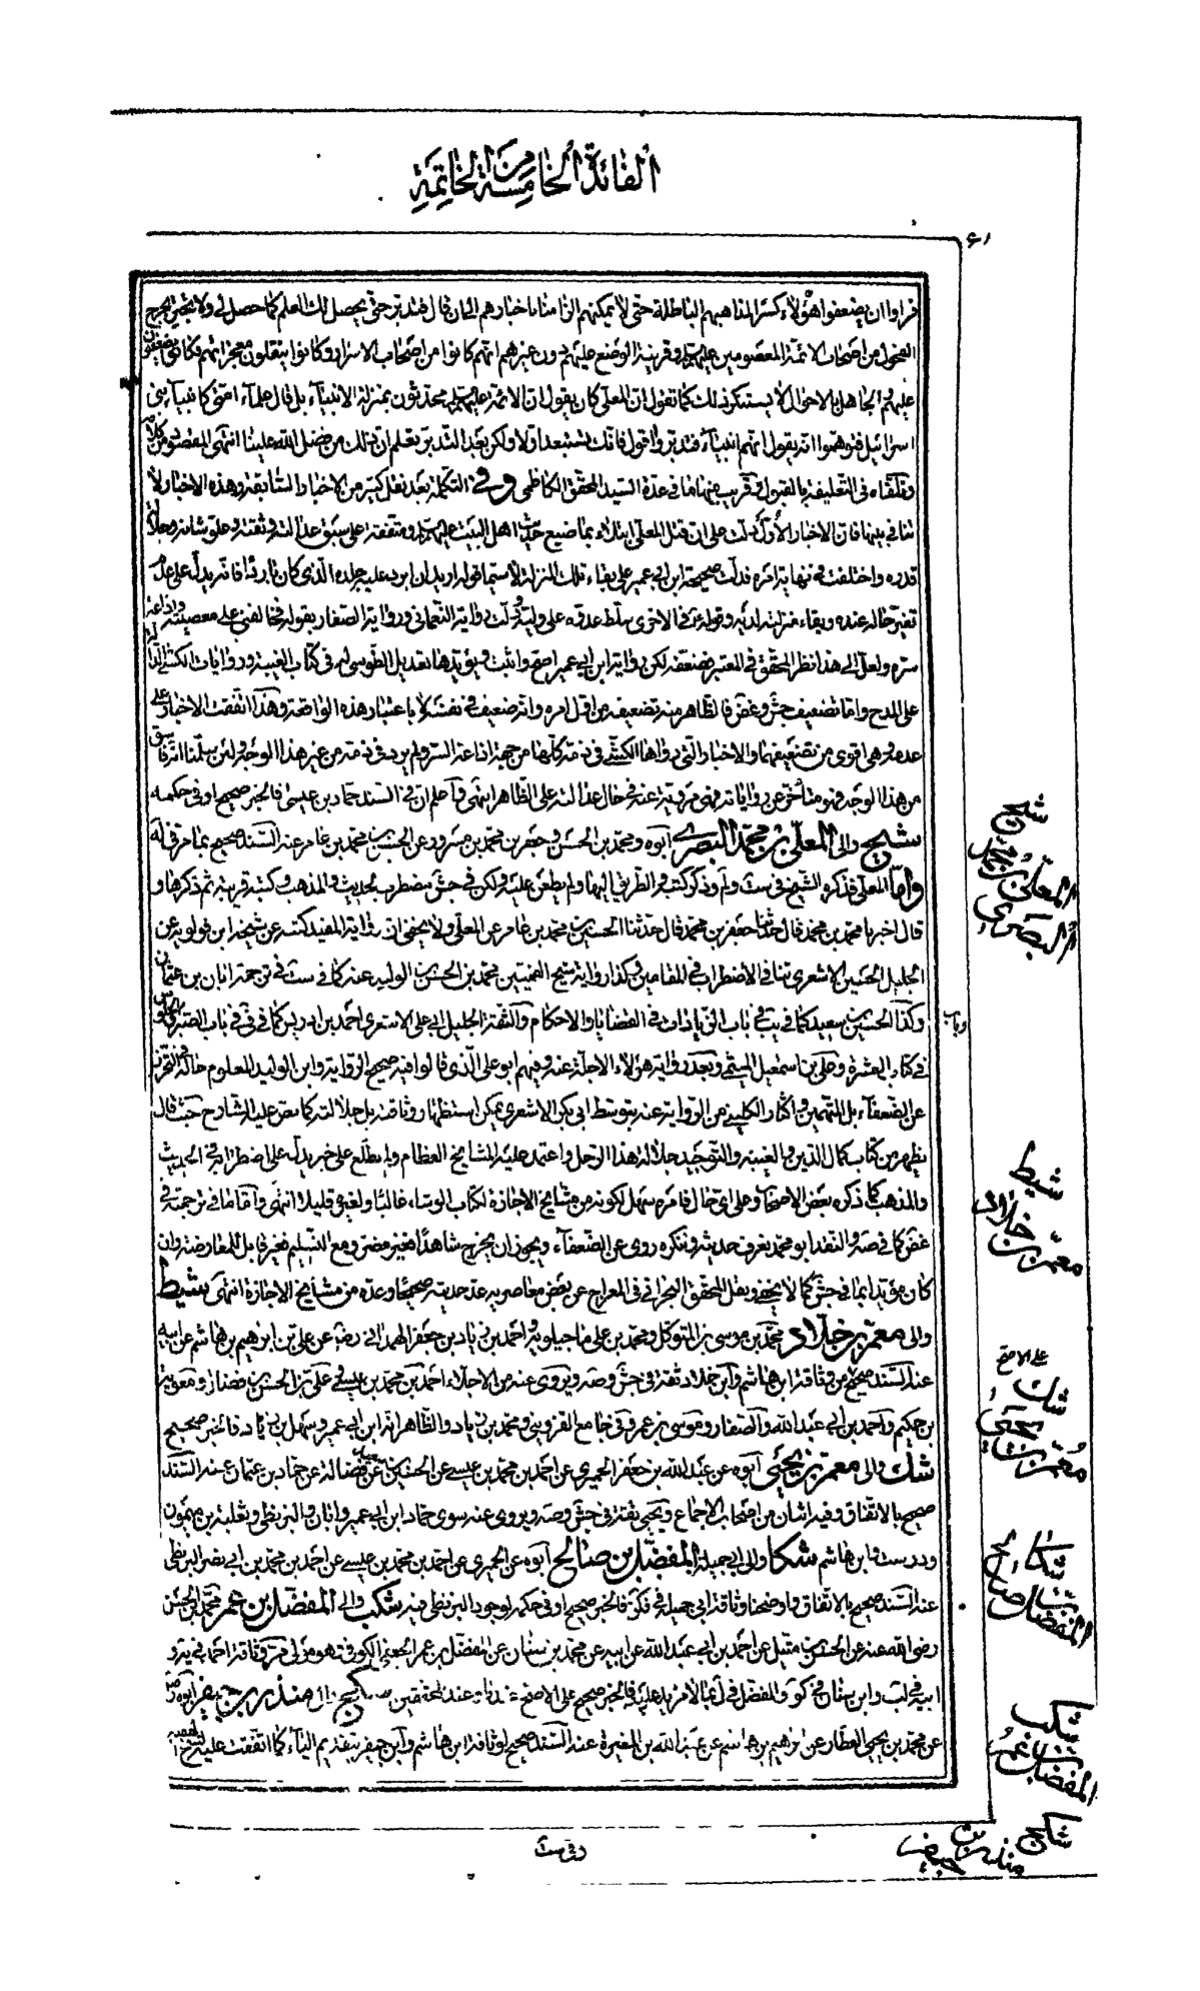 الفائدة الخامسة من الخاتمة
فراوا ان يضعفوا هؤلاء كسرا لمذاهبهم الباطلة حتى لا يمكنهم الزامنا باخبارهم الى ان قال فتدبر حتى يحصل لك العلم كما حصل لي ولا تجترئ بجرح
الفحول من اصحاب الائمة المعصومين عليهم السلام وقرينة الوضع عليهم دون غيرهم انهم كانوا من اصحاب الاسرار وكانوا ينقلون معجزاتهم فكانوا يضعفون
عليهم والجاهل بالاحوال لا يستنكر ذلك كما تقول ان المعلى كان يقول ان الائمة عليهم السلام محدثون بمنزلة الانبياء بل قال علماء امتي كانبياء بني
اسرائيل فتوهموا انه يقول انهم انبياء فتدبر واقول فانك تستبعد اولا ولكن بعد التدبر تعلم ان ذلك من فضل الله علينا انتهى المقصود من كلامه
وتلقاه في التعليقة بالقبول قريب منهما ما في عدة السيد المحقق الكاظمي وفي التكملة بعد نقل كثير من الاخبار السابقة وهذه الاخبار لا
تنافي بينها فان الاخبار الاول دلت على ان قتل المعلى ابتلاء بما ضيع حديث اهل البيت عليهم السلام ومتفقة على سبق عدالته وثقته وعلو شانه وجلالة
قدره واختلفت في نهاية امره فدلت صحيحة ابن ابي عمير على بقاء تلك المنزلة لا سيما قوله اريد ان ابرد عليه جلده الذي كان باردا فانه يدل على عدم
تغير حاله عنده وبقاء منزلته لديه وقوله ع في الاخرى سلط عدوه على وليه ودلت رواية النعماني ورواية الصفار بقوله فخالفني على معصيته واذاعة
سره ولعل الى هذا نظر المحقق في المعتبر فضعفه لكن رواية ابن ابي عمير اصح واثبت ويؤيدها تعديل الطوسي له في كتاب الغيبة وروايات الكشي الدالة
على المدح واما تضعيف جش وغض فالظاهر منه تضعيفه من اول امره وانه ضعيف في نفسه لا باعتبار هذه الواقعة وهذا اتفقت الاخبار على
عدمه وهي اقوى من تضعيفهما والاخبار التي رواها الكشي في ذمه كلها من جهة اذاعة السر ولم يرد في ذمه من غير هذا الوجه ولئن سلمنا انه فاسق
من هذا الوجه فهو متاخر عن رواياته فهي مروية عنه في حال عدالته على الظاهر انتهى واعلم ان في السند حماد بن عيسى فالخبر صحيح او في حكمه
شيح والى المعلى بن محمد البصري ابوه ومحمد بن الحسن وجعفر بن محمد بن مسرور عن الحسين بن محمد بن عامر عنه السند صحيح بما مر في له
واما المعلى فذكره الشيخ في ست ولم وذكر كتبه والطريق اليها ولم يطعن عليه ولكن في جش مضطرب الحديث والمذهب وكتبه قريبة ثم ذكرها و
قال اخبرنا محمد بن محمد قال حدثنا جعفر بن محمد قال حدثنا الحسين بن محمد بن عامر عن المعلى ولا يخفى ان رواية المفيد كتبه عن شيخه ابن قولويه عن
الجليل الحسين الاشعري تنافي الاضطراب في المقامين وكذا رواية شيخ القميين محمد بن الحسن بن الوليد عنه كما في ست في ترجمة ابان بن عثمان
وكذا الحسين بن سعيد كما في يب في باب الزيادات في القضايا والاحكام والثقة الجليل ابي علي الاشعري احمد بن ادريس كما في في في باب الصبر
في كتاب العشرة وعلي بن اسمعيل الميثمي وبعد رواية هؤلاء الاجلة عنه وفيهم ابو علي الذي قالوا فيه صحيح الرواية وابن الوليد المعلوم حاله في التحرز
عن الضعفاء بل المتهمين واكثار الكليني من الرواية عنه بتوسط ابي بكر الاشعري يمكن استظهار وثاقته بل جلالته كما نص عليه الشارح حيث قال
يظهر من كتاب كمال الدين والغيبة والتوحيد جلالة هذا الرجل واعتمد عليه المشايخ العظام ولم نطلع على خبر يدل على اضطرابه في الحديث
والمذهب كما ذكره بعض الاصحاب وعلى اي حال فامره سهل لكونه من مشايخ الاجازة لكتاب الوشاء غالبا ولغيره قليلا انتهى واما ما في ترجمته في
غض كما في صه والنقد ابو محمد يعرف حديثه وينكره روى عن الضعفاء ويجوز ان يخرج شاهدا فغير مضر ومع التسليم فغير قابل للمعارضة وان
كان مؤيدا بما في جش كما لا يخفى ونقل المحقق البحراني في المعراج عن بعض معاصريه عد حديثه صحيحا وعده من مشايخ الاجازة انتهى شيط
والى معمر بن خلاد محمد بن موسى بن المتوكل ومحمد بن علي ماجيلويه واحمد بن زياد بن جعفر الهمداني رضه عن علي بن ابرهيم بن هاشم عن ابيه
عنه السند صحيح من وثاقة ابن هاشم وابن خلاد ثقة في جش وصه ويروي عنه من الاجلاء احمد بن محمد بن عيسى وعلي بن الحسن بن فضال ومعوية
بن حكيم واحمد بن ابي عبد الله والصفار وموسى بن عمر وفي جامع القزويني ومحمد بن زياد والظاهر انه ابن ابي عمير وسهل بن زياد فالخبر صحيح
شك والى معمر بن يحيى ابوه عن عبد الله بن جعفر الحميري عن احمد بن محمد بن عيسى عن الحسين بن سعيد عن فضالة عن حماد بن عثمان عنه السند
صحيح بالاتفاق وفيه اثنان من اصحاب الاجماع ويحيى ثقة في جش وصه ويروي عنه سوى حماد ابن ابي عمير وابان والبزنطي وثعلبة بن ميمون
ودرست وابن هاشم شكا والى ابي جميلة المفضل بن صالح ابوه عن الحميري عن احمد بن محمد بن عيسى عن احمد بن محمد بن ابي نصر البزنطي
عنه السند صحيح بالاتفاق واوضحنا وثاقة ابي جميلة في فكر فالخبر صحيح او في حكمه لوجود البزنطي فيه شكب والى المفضل بن عمر محمد بن الحسن
رضي الله عنه عن الحسن بن متيل عن احمد بن ابي عبد الله عن ابيه عن محمد بن سنان عن المفضل بن عمر الجعفي الكوفي وهو مولى مر وثاقة احمد في يد و
ابيه في لب وابن سنان في كو والمفضل في ل بما لا مزيد عليه فالخبر صحيح على الاصح عندنا وعند المحققين شكج والى منذر بن جيفر ابوه رضه
عن محمد بن يحيى العطار عن ابرهيم بن هاشم عن عبد الله بن المغيرة عنه السند صحيح لوثاقة ابن هاشم وابن جيفر بتقديم الياء كما اتفقت عليه
شيح
المعلى بن محمد
البصري
وباب
شيط
معمر بن خلاد
على الاصح
شك
معمر بن يحيى
شكا
المفضل بن صالح
شكب
المفضل بن عمر
شكج
منذر بن جيفر
وفي ست